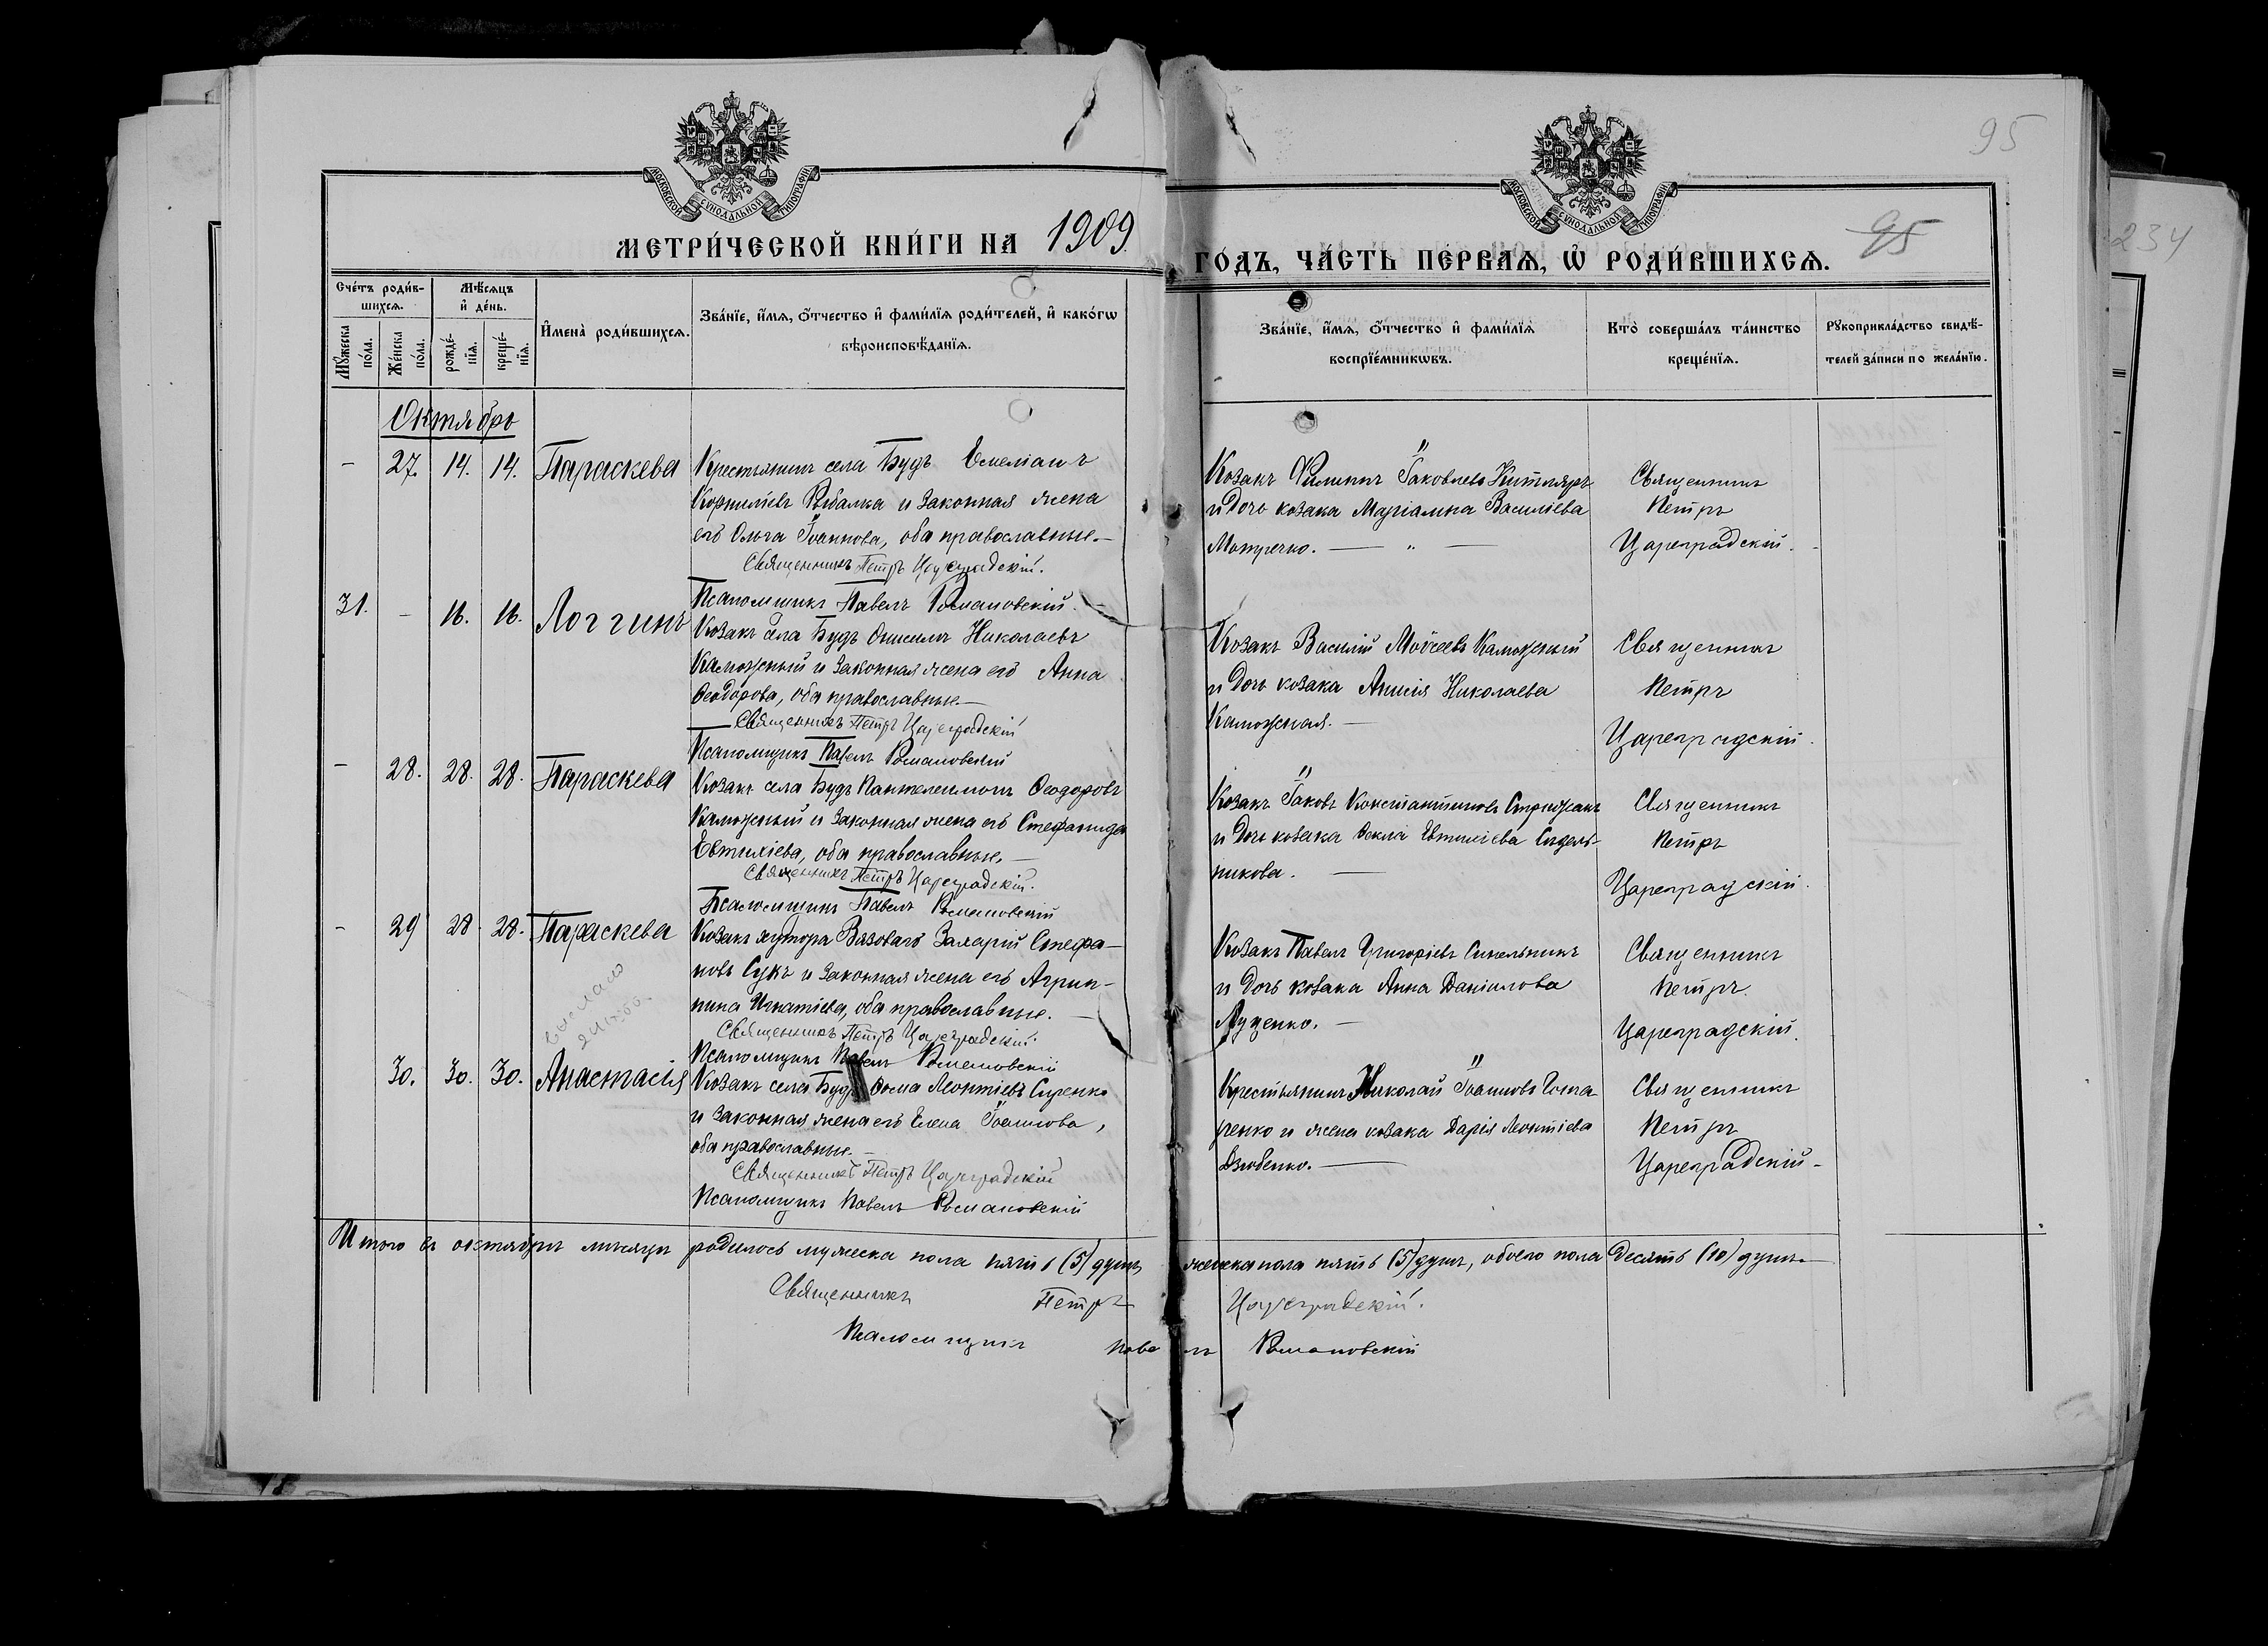 95
МОСКОВСКОЙ СѴНОДАЛЬНОЙ ТИПОГРАФІИ
МОСКОВСКОЙ СѴНОДАЛЬНОЙ ТИПОГРАФІИ
МЕТРИ́ЧЕСКОЙ КНИ́ГИ НА 1909 ГО́ДЪ, ЧА́СТЬ ПЕ́РВАѦ, Ѡ҆ РОДИ́ВШИХСѦ.
95
234
Сче́тъ роди́в-
шихсѧ.
Мꙋ́жеска
по́ла.
Же́нска
по́ла.
Мѣ́сѧцъ
и҆ де́нь.
рожде́-
нїѧ.
креще́-
нїѧ.
И҆мена̀ роди́вшихсѧ.
Зва́нїе, и҆́мѧ, ѻ҆́тчество и҆ фами́лїѧ роди́телей, и҆ како́гѡ
вѣроисповѣ́данїѧ.
Зва́нїе, и҆́мѧ, ѻ҆́тчество и҆ фами́лїѧ
воспрїе́мникѡвъ.
Кто̀ соверша́лъ та́инство
креще́нїѧ.
Рꙋкоприкла́дство свидѣ́-
телей за́писи по жела́нїю.
Октябрь
- 27. 14. 14. Параскева
Крестьянинъ села Будъ Емеліанъ
Корниліевъ Рыбалка и законная жена
его Ольга Іоаннова, оба православные.—
Священникъ Петръ Цареградскій.
Псаломщикъ Павелъ Романовскій.
Козакъ Филиппъ Іаковлевъ
и дочь козака Маріамна Василіева
Священникъ
Петръ
Цареградскій.
31. - 16. 16. Логгинъ
Козакъ села Будъ Онисимъ Николаевъ
Каможный и законная жена его Анна
Ѳеодорова, оба православные.—
Священникъ Петръ Цареградскій
Псаломщикъ Павелъ Романовскій
Козакъ Василій Моѵсеевъ Каможный
и дочь козака Анисія Николаева
Каможная.—
Священникъ
Петръ
Цареградскій.
- 28. 28. 28. Параскева
Козакъ села Будъ Пантелеимонъ Ѳеодоровъ
Каможный и законная жена его Стефанида
Евтихіева, оба православные.—
Священникъ Петръ Цареградскій.
Псаломщикъ Павелъ Романовскій
Козакъ Іаковъ Константиновъ Стрижакъ
и дочь козака Ѳекла Евтихіева Сидель-
никова.—
Священникъ
Петръ
Цареградскій.
- 29 28. 28. Параскева
Козакъ хутора Вязоваго Захарій Стефа-
новъ Сукъ и законная жена его Агрип-
пина Игнатіева, оба православные.—
Священникъ Петръ Цареградскій.
Псаломщикъ Павелъ Романовскій
Козакъ Павелъ Григоріевъ Синельникъ
и дочь козака Анна Даніилова
Луценко.—
Священникъ
Петръ.
Цареградскій.
30. 30. 30. Анастасія
Козакъ села Будъ Ѳома Леонтіевъ Сиренко
и законная жена его Елена Іоаннова,
оба православные.—
Священникъ Петръ Цареградскій
Псаломщикъ Павелъ Романовскій
Крестьянинъ Николай Іоанновъ Гонча
ренко и жена козака Дарія Леонтіева
Дзюбенко.—
Священникъ
Петръ
Цареградскій.
Итого въ октябрѣ мѣсяцѣ родилось мужеска пола пять (5) душъ, женска пола пять (5) душъ, обоего пола десять (10) душъ.—
Священникъ Петръ Цареградскій.
Псаломщикъ Павелъ Романовскій